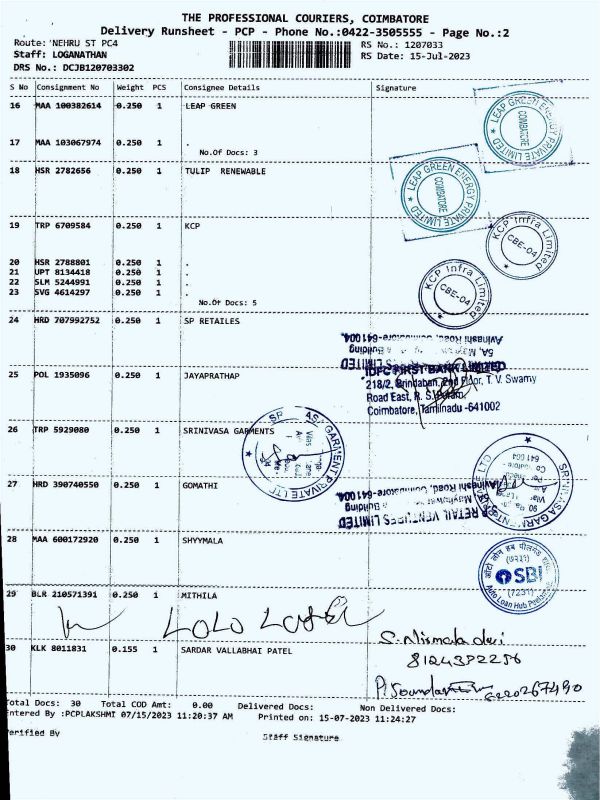 THE PROFESSIONAL COURIERS, COIMBATORE
Delivery Runsheet - PCP - Phone No.:0422-3505555 - Page No.:2
Route: NEHRU ST PC4
RS No.: 1207033
Staff: LOGANATHAN
RS Date: 15-Jul-2023
DRS No.: DCJB120703302
S No Consignment No Weight PCS Consignee Details Signature
16 MAA 100382614 0.250 1 LEAP GREEN
LEAP GREEN ENERGY PRIVATE LIMITED
COIMBATORE
17 MAA 103067974 0.250 1 .
No.Of Docs: 3
18 HSR 2782656 0.250 1 TULIP RENEWABLE
LEAP GREEN ENERGY PRIVATE LIMITED
COIMBATORE
19 TRP 6709584 0.250 1 KCP
KCP Infra Limited
CBE-04
20 HSR 2788801 0.250 1 .
21 UPT 8134418 0.250 1 .
22 SLM 5244991 0.250 1 .
23 SVG 4614297 0.250 1 .
No.Of Docs: 5
KCP Infra Limited
CBE-04
24 HRD 707992752 0.250 1 SP RETAILES
Avinashi Road, Coimbatore-641004.
Building
IDFC FIRST BANK LIMITED
25 POL 1935096 0.250 1 JAYAPRATHAP
218/2, Brindaban, 2nd Floor, T. V. Swamy
Road East, R. S. Puram,
Coimbatore, Tamilnadu -641002
26 TRP 5929080 0.250 1 SRINIVASA GARMENTS
GARMENT PRIVATE LTD
27 HRD 390740550 0.250 1 GOMATHI
Avinashi Road, Coimbatore-641004.
Building
SP RETAIL VENTURES LIMITED
28 MAA 600172920 0.250 1 SHYYMALA
SBI
(7231)
Auto Loan Hub
29 BLR 210571391 0.250 1 MITHILA
30 KLK 8011831 0.155 1 SARDAR VALLABHAI PATEL
S. Nirmala devi
8124382256
8220267490
Total Docs: 30 Total COD Amt: 0.00 Delivered Docs: Non Delivered Docs:
Entered By :PCPLAKSHMI 07/15/2023 11:20:37 AM Printed on: 15-07-2023 11:24:27
Verified By Staff Signature